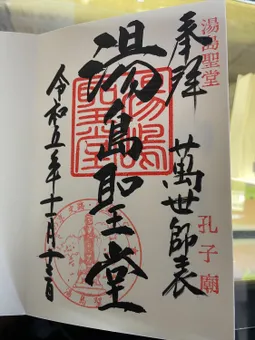 湯島聖堂
奉拝
萬世師表
孔子廟
湯島聖堂
湯島聖堂
令和五年十一月十三日